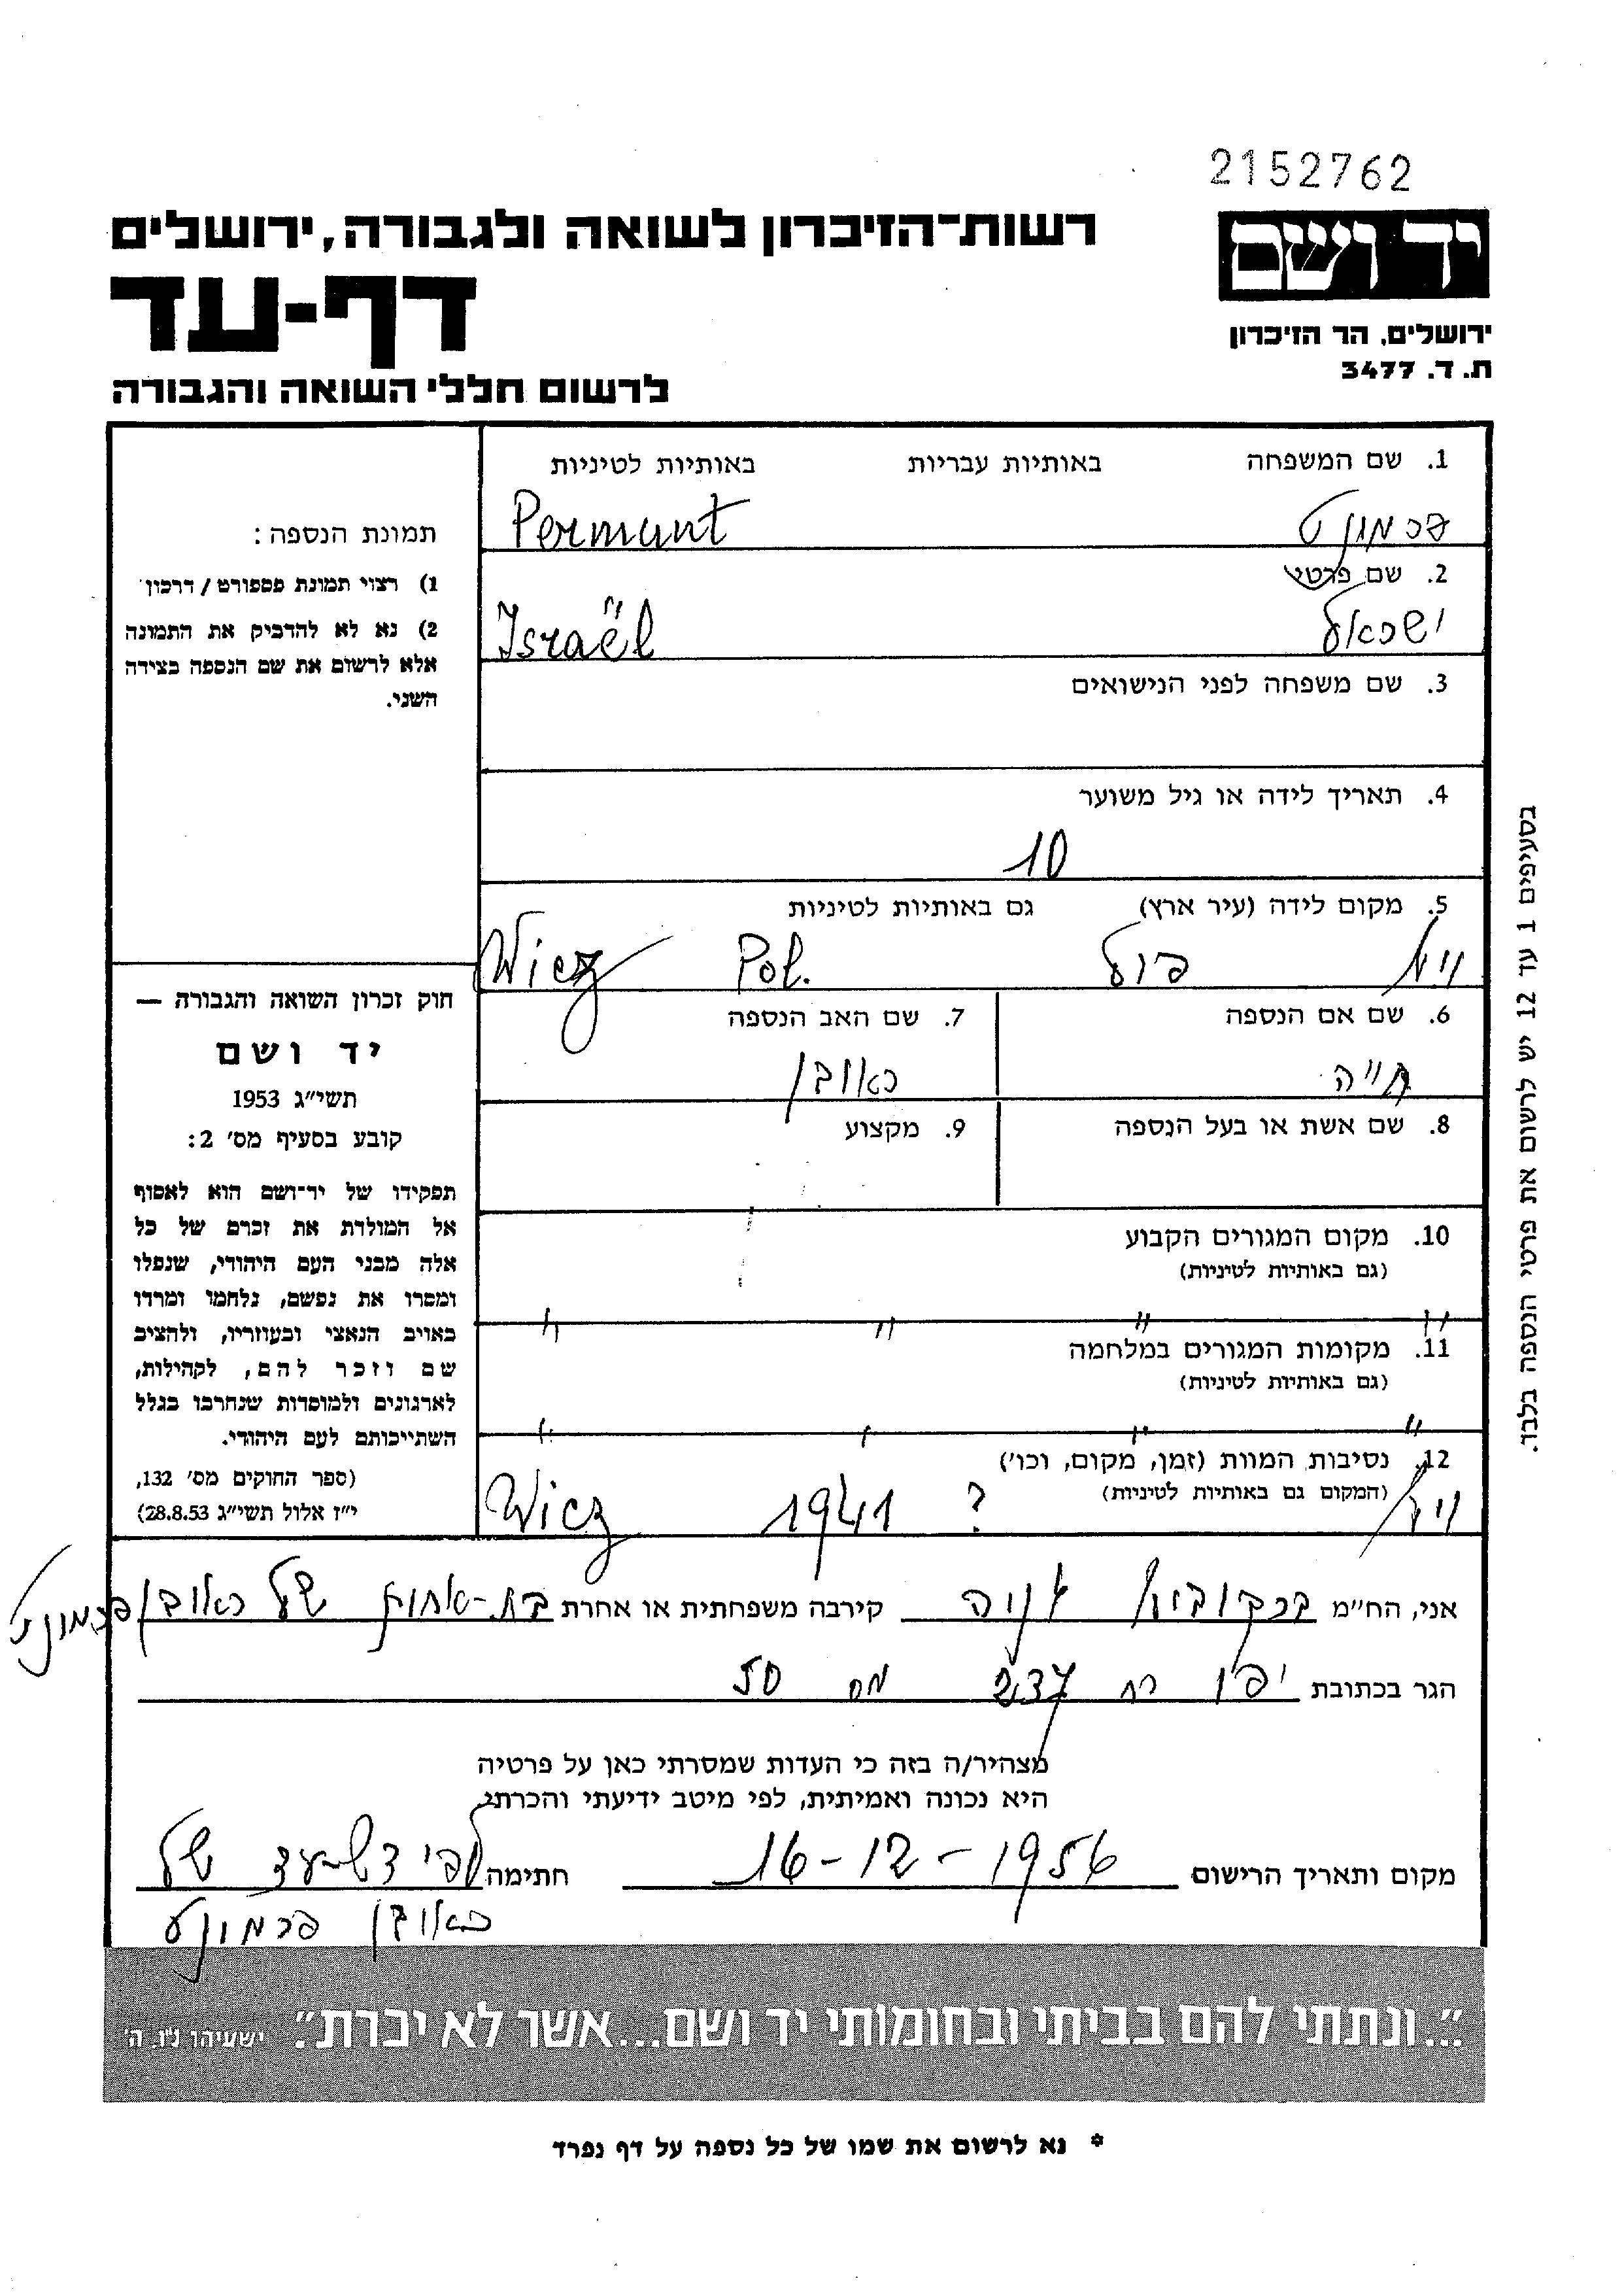 2152762
יד ושם
רשות־הזיכרון לשואה ולגבורה, ירושלים
דף-עד
ירושלים, הר הזיכרון
ת. ד. 3477
לרשום חללי השואה והגבורה
1. שם המשפחה באותיות עבריות באותיות לטיניות
פרמונט Permunt
2. שם פרטי
ישראל Israël
3. שם משפחה לפני הנישואים
4. תאריך לידה או גיל משוער
10
5. מקום לידה (עיר ארץ) גם באותיות לטיניות
פול Pol. Wicz
6. שם אם הנספה
חייה
7. שם האב הנספה
ראובן
8. שם אשת או בעל הנספה
9. מקצוע
10. מקום המגורים הקבוע
(גם באותיות לטיניות)
" " " "
11. מקומות המגורים במלחמה
(גם באותיות לטיניות)
" " " "
12. נסיבות המוות (זמן, מקום, וכו')
(המקום גם באותיות לטיניות)
? 1941 Wicz
תמונת הנספה:
1) רצוי תמונת פספורט / דרכון
2) נא לא להדביק את התמונה
אלא לרשום את שם הנספה בצידה
השני.
חוק זכרון השואה והגבורה —
יד ושם
תשי"ג 1953
קובע בסעיף מס' 2:
תפקידו של יד־ושם הוא לאסוף
אל המולדת את זכרם של כל
אלה מבני העם היהודי, שנפלו
ומסרו את נפשם, נלחמו ומרדו
באויב הנאצי ובעוזריו, ולהציב
שם וזכר להם, לקהילות,
לארגונים ולמוסדות שנחרבו בגלל
השתייכותם לעם היהודי.
(ספר החוקים מס' 132,
י"ז אלול תשי"ג 28.8.53)
בסעיפים 1 עד 12 יש לרשום את פרטי הנספה בלבד.
אני, הח"מ ברקוביץ קירבה משפחתית או אחרת בת-אחות של ראובן פרמונט
הגר בכתובת יפו רח מס 50
מצהיר/ה בזה כי העדות שמסרתי כאן על פרטיה
היא נכונה ואמיתית, לפי מיטב ידיעתי והכרתי.
מקום ותאריך הרישום 16-12-1956 חתימה לפי דף-עד של
ראובן פרמונט
"...ונתתי להם בביתי ובחומותי יד ושם...אשר לא יכרת". ישעיהו נ"ו, ה'
* נא לרשום את שמו של כל נספה על דף נפרד